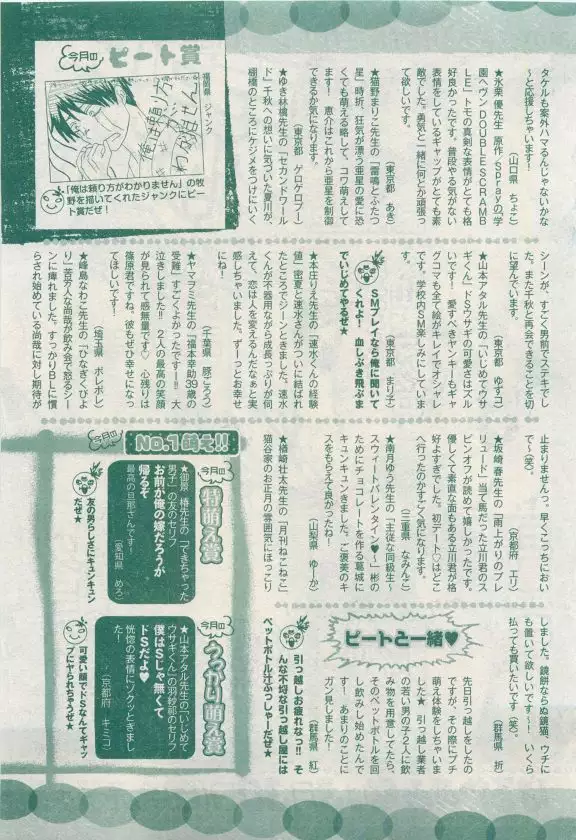 今月の
ピート賞
福岡県 ジャンク
俺は頼り方がわかりません
「俺は頼り方がわかりません」の牧
野を描いてくれたジャンクにピー
ト賞だぜ!
タケルも案外ハマるんじゃないかな
~と応援しちゃいます!
(山口県 ちょこ)
★氷栗優先生 原作・Sprayの「学
園ヘヴン DOUBLE SCRAMB
LE」トモの真剣な表情がとても格
好良かったです。普段やる気がない
表情をしているギャップがとても素
敵でした。勇気と一緒に何とか頑張っ
て欲しいです。
(東京都 あき)
★猫野まりこ先生の「雷鳴とふたつ
星」時折、狂気が漂う亜星の愛に恐
くても萌える略して、コワ萌えして
ます! 恵介はこれから亜星を制御
できるか気になります。
(東京都 ゲロゲロブー)
★ゆき林檎先生の「セカンドワール
ド」千秋への想いに気づいた夏川が、
棚橋のところにケジメをつけにいく
シーンが、すごく男前でステキでし
た。また千秋と再会できることを切
に望んでいます。
(東京都 ゆずこ)
★山本アタル先生の「いじめてウサ
ギくん」ドSウサギの可愛さはズル
いです! 愛すべきヤンキーもギャ
グコマも全て絵がキレイでオシャレ
です。学校内SM楽しみにしていま
す。
(東京都 まり子)
SMプレイなら俺に聞いて
くれよ! 血しぶき飛ぶま
でいじめてやるぜ★
★本庄りえ先生の「速水くんの経験
値」密夏と速水さんがついに結ばれ
たところでジーンときました。速水
くんが不器用ながら成長っぷりが伺
えて、恋は人を変えるんだなぁと実
感しちゃいました。ずーっとお幸せ
にね!
(千葉県 豚ごろう)
★ヤマヲミ先生の「福本幸助39歳の
受難」すごくよかったです!! 大
泣きしました!! 2人の最高の笑顔
が見られて感無量です♡ 心残りは
篠原君ですね。彼もぜひ幸せになっ
てほしいです!
(埼玉県 ポレポレ)
★峰島なわこ先生の「ひなぎくびよ
り」苦労人な尚哉が飲み会で怒るシー
ンに痺れました。すっかりBLに慣
らされ始めている尚哉に対し期待が
止まりませんっ。早くこっちにおい
で~(笑)。
(京都府 エリ)
★坂崎春先生の「雨上がりのプレ
リュード」当て馬だった立川君のス
ピンオフが読めて嬉しかったです。
優しくて素直な面もある立川君が格
好よすぎでした。初デートはどこ
へ行ったのかすごく気になります。
(三重県 なみんご)
★南月ゆう先生の「主従な同級生~
スウィートバレンタイン♥~」彬の
ためにチョコレートを作る葛城に
キュンキュンきました。ご褒美のキ
スをもらえて良かったね!
(山梨県 ゆーか)
★楢崎壮太先生の「月刊ねこねこ」
猫谷家のお正月の雰囲気にほっこり
しました。鏡餅ならぬ鏡猫、ウチに
も置いて欲しいです~! いくら
払っても買いたいです(笑)。
(群馬県 折)
ピートと一緒♥
先日引っ越しをしたの
ですが、その際にプチ
萌え体験をしちゃいま
した★ 引っ越し業者
の若い男の子2人に飲
み物を用意してたら、
そのペットボトルを回
し飲みし始めたんで
す! あまりのことに
ガン見しました!
(群馬県 紅)
引っ越しお疲れなっ!! そ
んな不埒な引っ越し屋には
ペットボトル汁ぶっしゃーだぜ★
今月の
No.1萌え!!
今月の
特萌え賞
★御景椿先生の「できちゃった
男子」の友のセリフ
お前が俺の嫁だろうが
帰るぞ
最高の旦那さんです!
(愛知県 めろ)
友の男らしさにキュンキュン
だぜ★
今月の
うっかり萌え賞
★山本アタル先生の「いじめて
ウサギくん」の羽紗那のセリフ
僕はSじゃ無くて
ドSだよ♥
恍惚の表情にゾクッときまし
た!
(京都府 キミコ)
可愛い顔でドSなんてギャッ
プにヤられちゃうぜ★